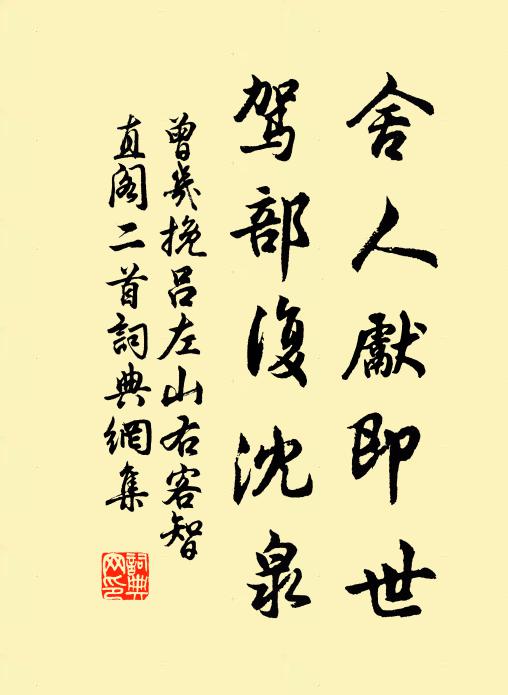 舍人獻即世
駕部復沈泉
曾幾挽呂左山右客智
直閣二首詞典網集
詞典網印